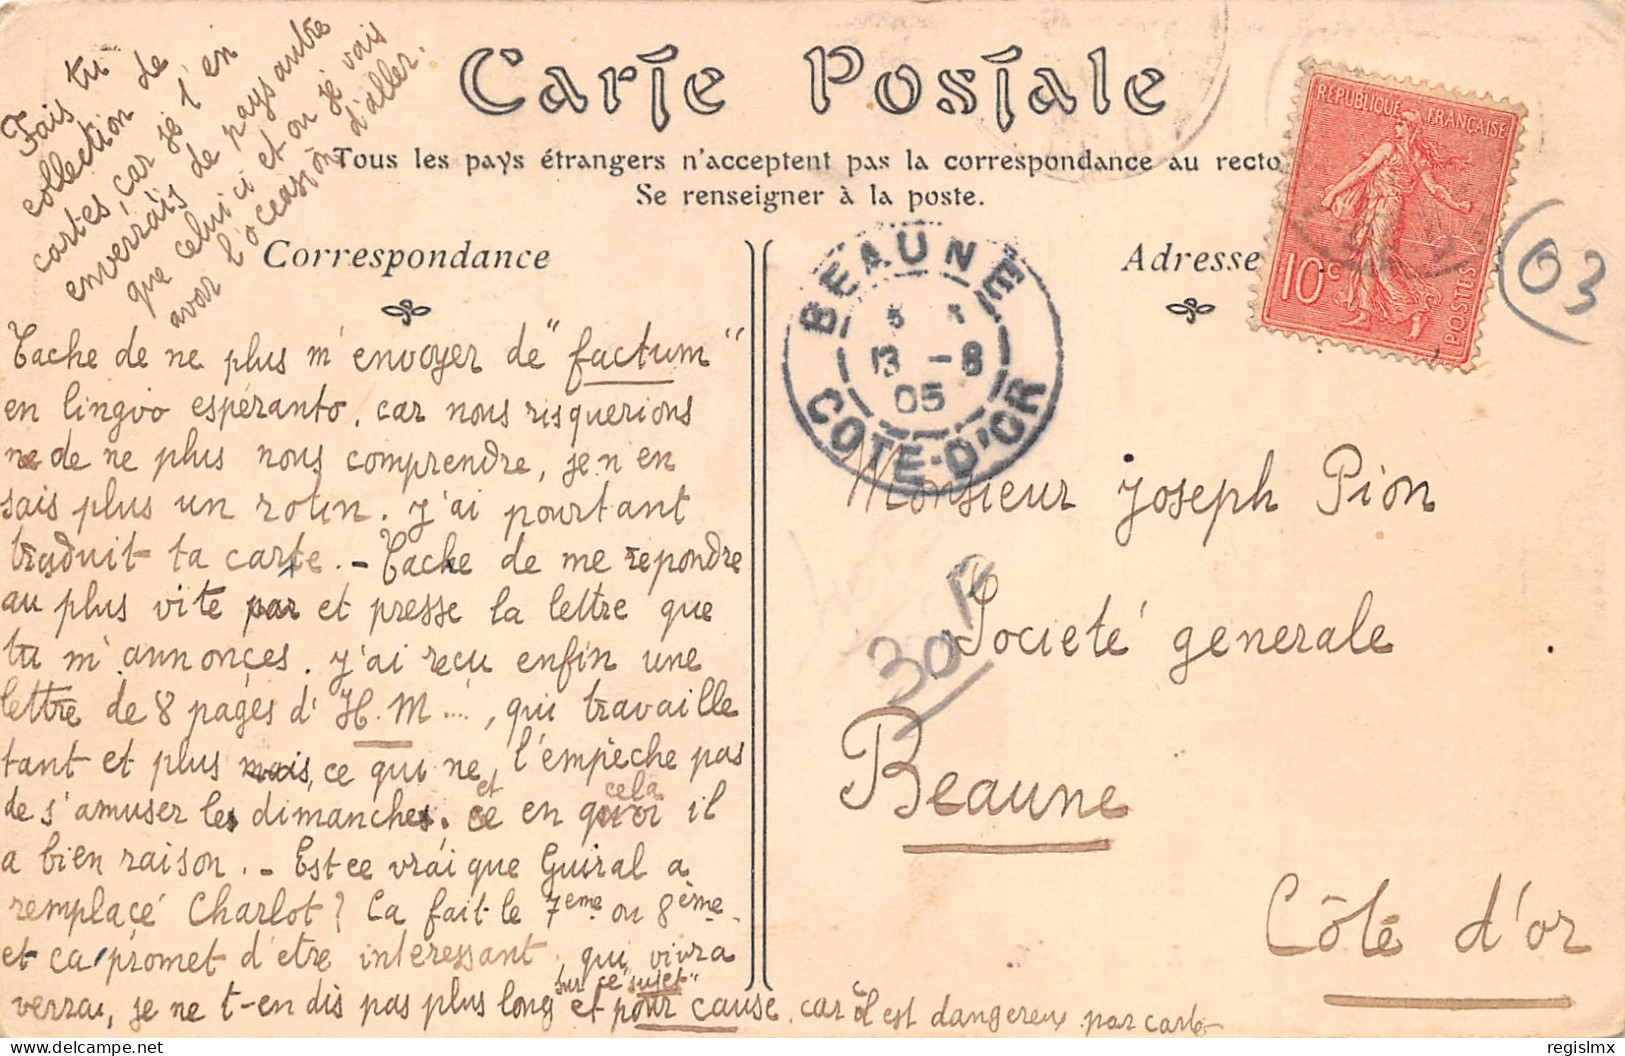 Fais tu
collection de
cartes, car je t'en
enverrais de pays autre
que celui ci et ou je vais
avoir l'occasion d'aller.
Carte Postale
Tous les pays étrangers n'acceptent pas la correspondance au recto
Se renseigner à la poste.
Correspondance
Tache de ne plus m'envoyer de "factum"
en lingvo espéranto, car nous risquerions
de ne plus nous comprendre, je n en
sais plus un rotin. J'ai pourtant
traduit ta carte. - Tache de me repondre
au plus vite par et presse la lettre que
tu m'annonçes. J'ai reçu enfin une
lettre de 8 pages d'H.M...., qui travaille
tant et plus mais, ce qui ne l'empêche pas
de s'amuser les dimanches. et ce en quoi cela il
a bien raison. - Est ce vrai que Guiral a
remplacé Charlot? Ca fait le 7eme ou 8ème
et ca promet d'etre interessant, qui vivra
verra, je ne t-en dis pas plus long sur ce "sujet"
et pour cause, car il est dangereux par carte
Adresse
RÉPUBLIQUE FRANÇAISE
10c
POSTES
BEAUNE
13 -8
05
COTE-D'OR
03
Monsieur Joseph Pion
Societé generale
Beaune
Côte d'or
regislmx
delcampe.net